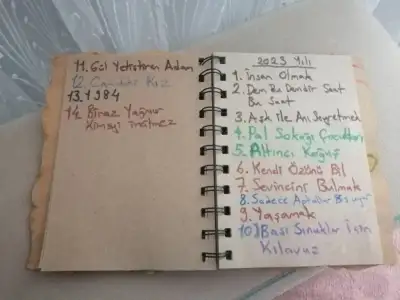 11. Gül Yetiştiren Adam
12. Camdaki Kız
13. 1984
14. Biraz Yağmur
Kimseyi İncitmez
2023 Yılı
1. İnsan Olmak
2. Dem Bu Demdir Saat
Bu Saat
3. Aşk ile Anı Seyretmek
4. Pal Sokağı Çocukları
5. Altıncı Koğuş
6. Kendi Özünü Bil
7. Sevincini Bulmak
8. Sadece Aptallar 8 Saat Uyur
9. Yaşamak
10) Başı Sınuklar İçin
Kılavuz